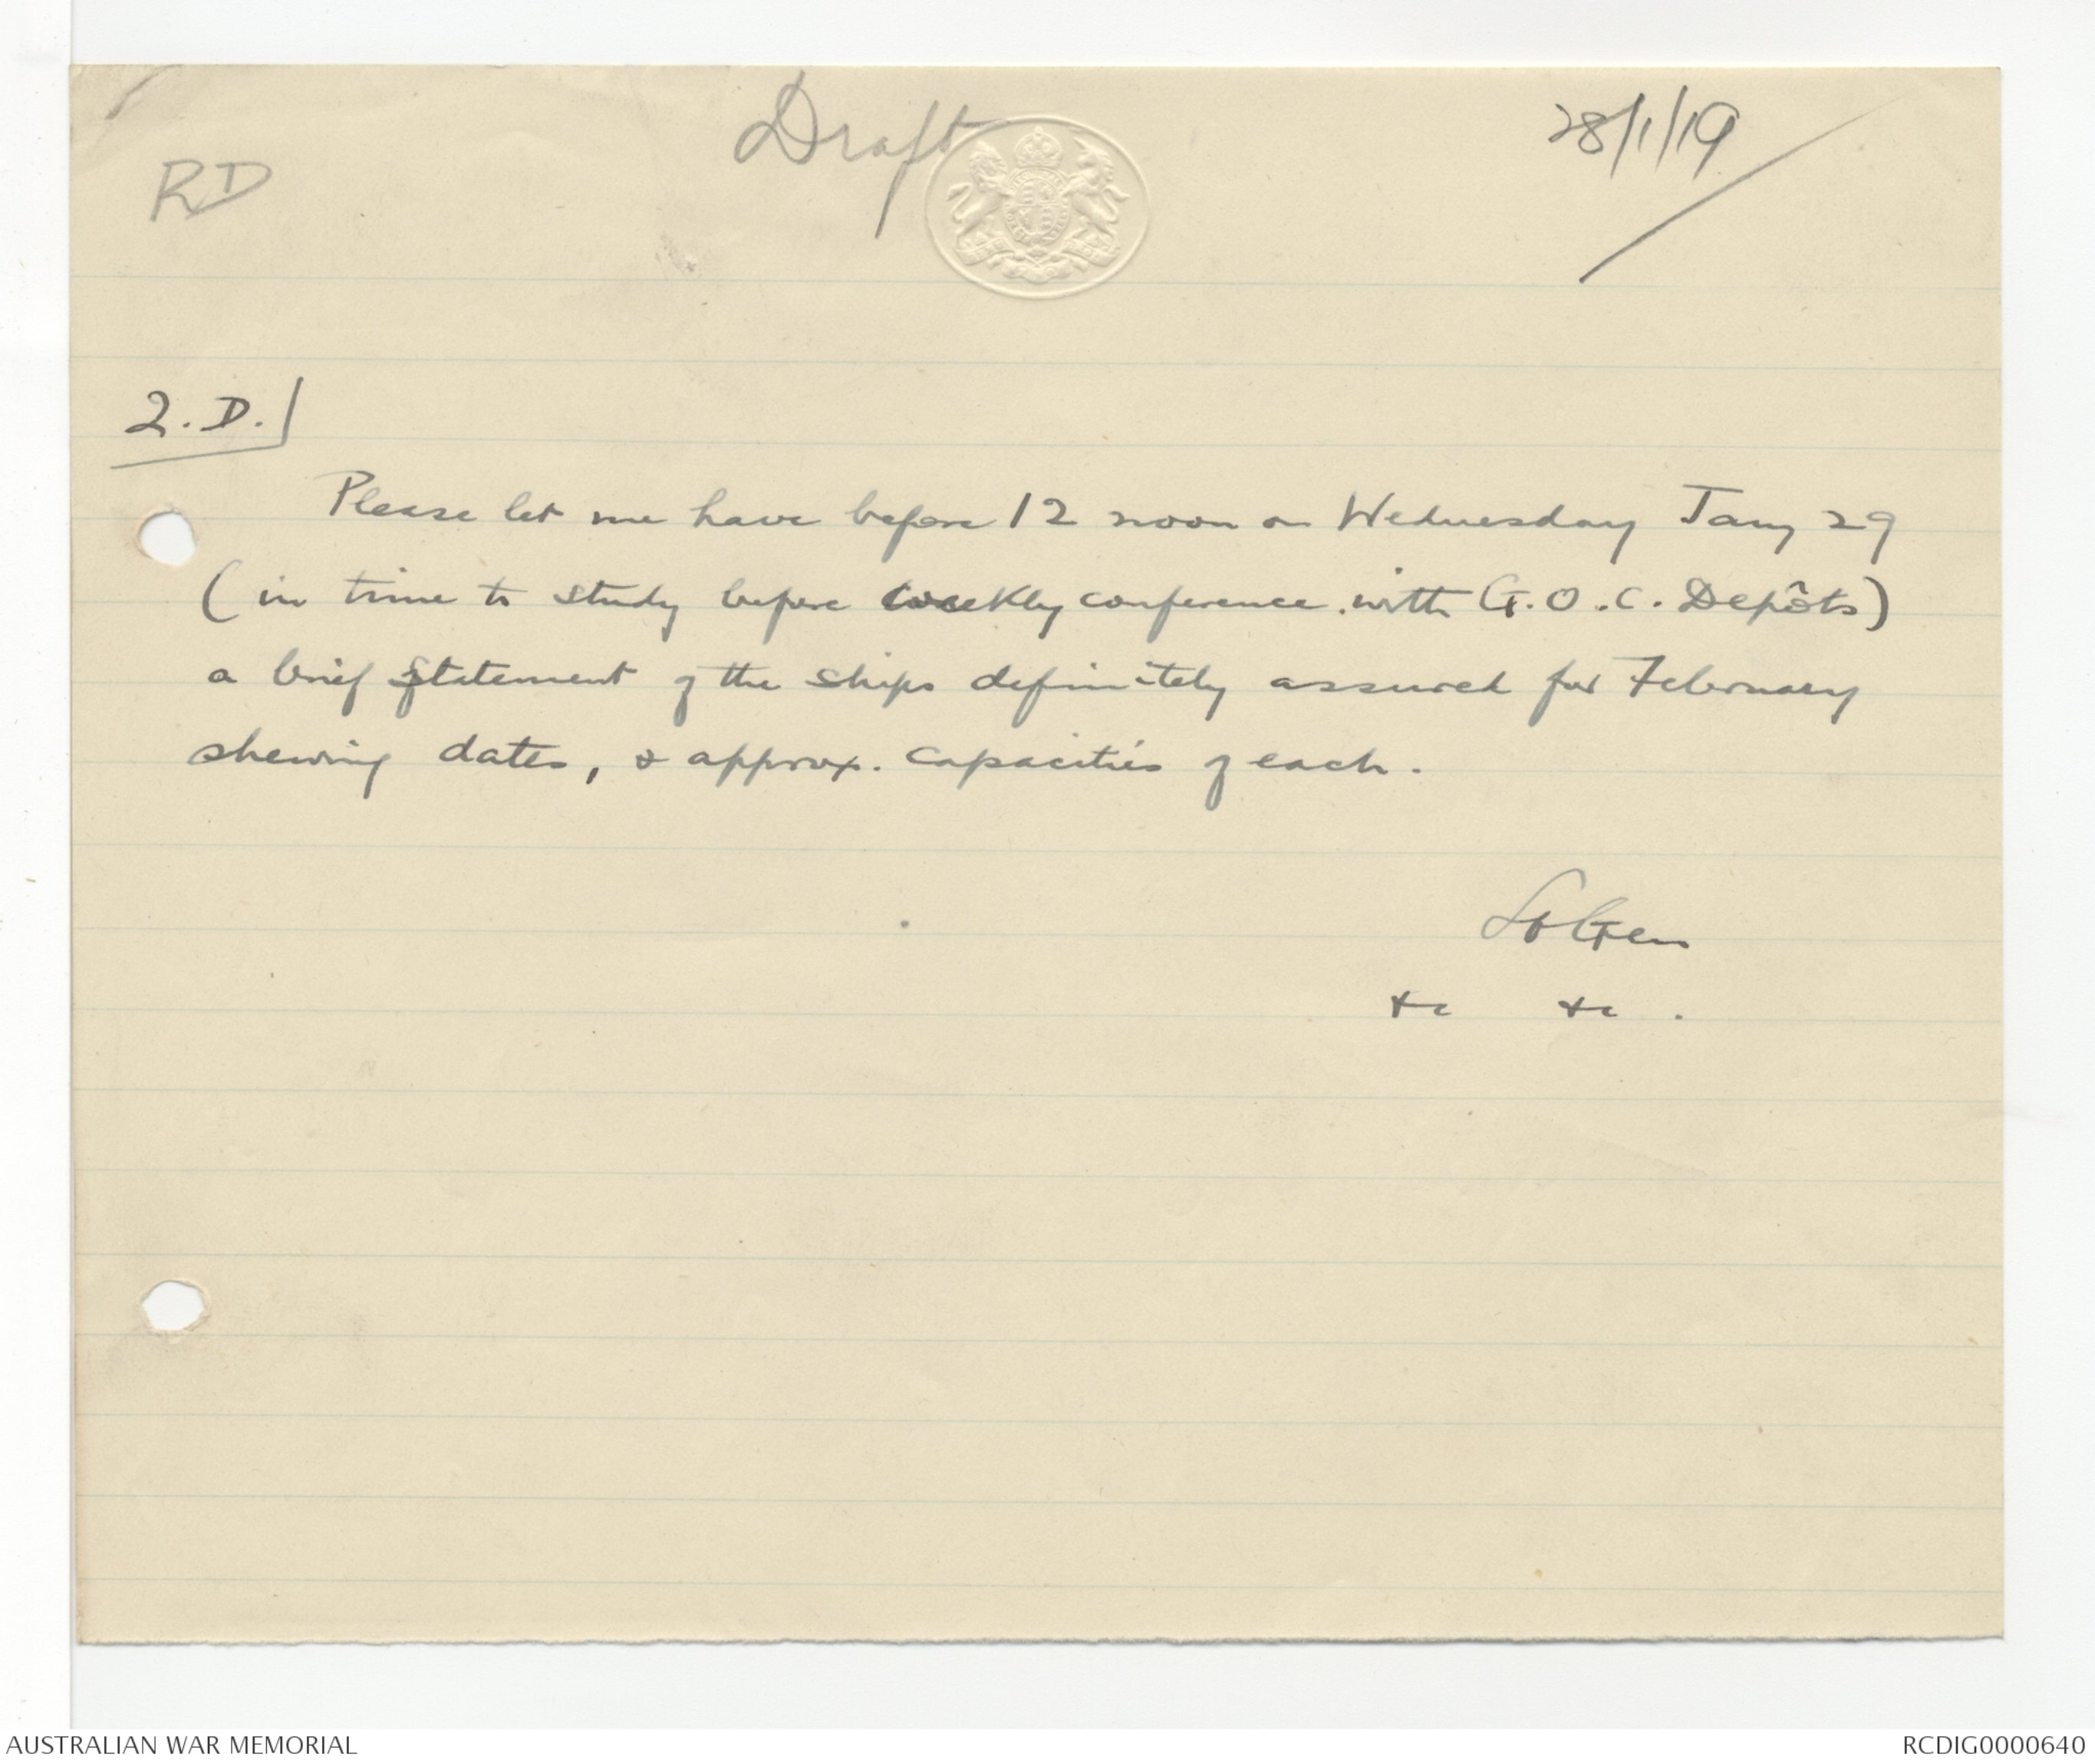 Draft
28/1/19
RD
2.D.
Please let me have before 12 noon on Wednesday Jany 29
(in time to study before weekly conference with G.O.C. Depôts)
a brief statement of the ships definitely assured for February
shewing dates, & approx. capacities of each.
Lt Gen
&c &c.
AUSTRALIAN WAR MEMORIAL
RCDIG0000640